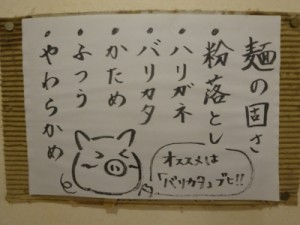 麺の固さ
・粉落とし
・ハリガネ
・バリカタ
・かため
・ふつう
・やわらかめ
オススメは
「バリカタ」ブヒ!!